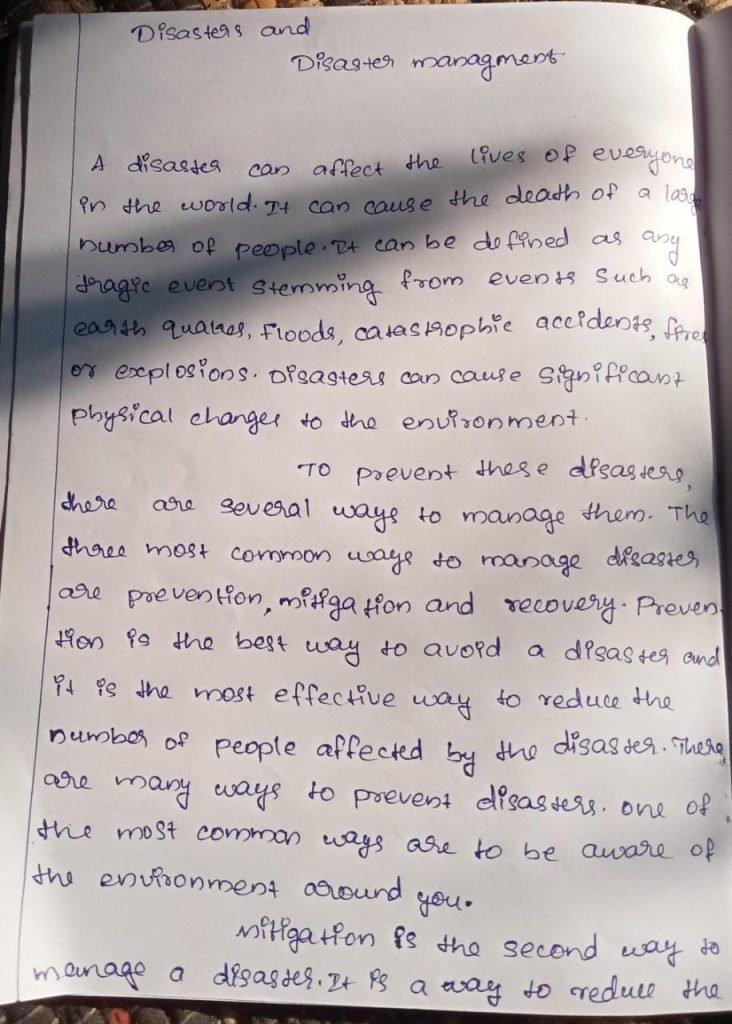 Disasters and
Disaster managment
A disaster can affect the lives of everyone
in the world. It can cause the death of a large
number of people. It can be defined as any
tragic event stemming from events such as
earth quakes, floods, catastrophic accidents, fires
or explosions. Disasters can cause significant
physical changes to the environment.
To prevent these disasters,
there are several ways to manage them. The
three most common ways to manage disaster
are prevention, mitigation and recovery. Preven
tion is the best way to avoid a disaster and
it is the most effective way to reduce the
number of people affected by the disaster. There
are many ways to prevent disasters. one of
the most common ways are to be aware of
the environment around you.
Mitigation is the second way to
manage a disaster. It is a way to reduce the